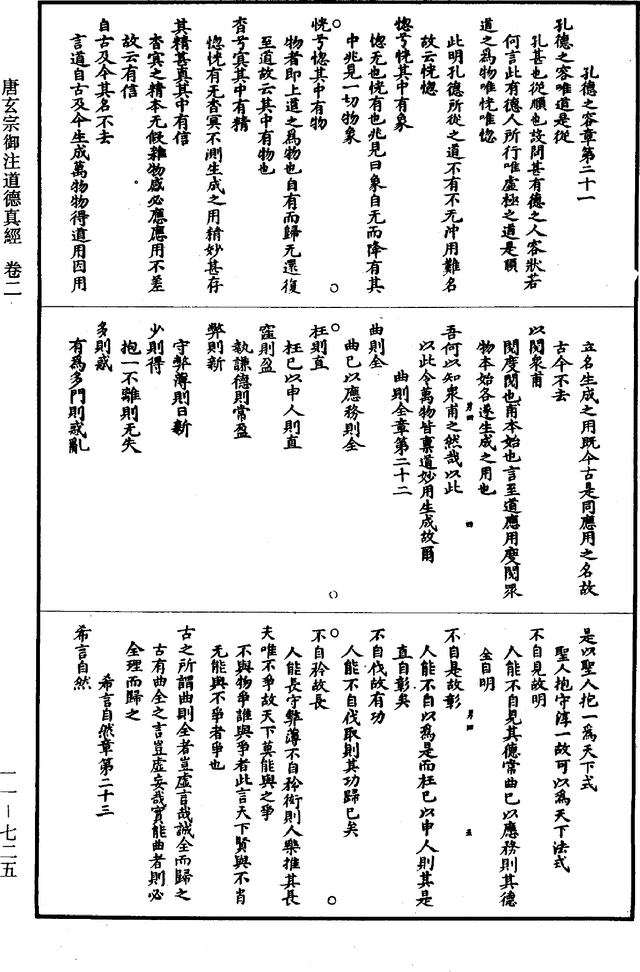 孔德之容章第二十一
孔德之容唯道是從
孔甚也從順也設問甚有德之人容狀若
何言此有德人所行唯虛極之道是順
道之為物唯恍唯惚
此明孔德所從之道不有不无沖用難名
故云恍惚
惚兮恍其中有象
惚无也恍有也兆見曰象自无而降有其
中兆見一切物象
恍兮惚其中有物
物者即上道之為物也自有而歸无還復
至道故云其中有物也
杳兮冥其中有精
惚恍有无杳冥不測生成之用精妙甚存
其精甚真其中有信
杳冥之精本无假雜物感必應應用不差
故云有信
自古及今其名不去
言道自古及今生成萬物物得道用因用
立名生成之用既今古是同應用之名故
古今不去
以閱衆甫
閱度閱也甫本始也言至道應用度閱眾
物本始各遂生成之用也
吾何以知衆甫之然哉以此
以此今萬物皆稟道妙用生成故爾
曲則全章第二十二
曲則全
曲己以應務則全
枉則直
枉己以申人則直
窪則盈
執謙德則常盈
弊則新
守弊薄則日新
少則得
抱一不離則无失
多則惑
有為多門則惑亂
是以聖人抱一為天下式
聖人抱守淳一故可以為天下法式
不自見故明
人能不自見其德常曲已以應務則其德
全自明
不自是故彰
人能不自以為是而枉已以申人則其是
直自彰矣
不自伐故有功
人能不自伐取則其功歸已矣
不自矜故長
人能長守弊薄不自矜衒則人樂推其長
夫唯不爭故天下莫能與之爭
不與物爭誰與爭者此言天下賢與不肖
无能與不爭者爭也
古之所謂曲則全者豈虛言哉誠全而歸之
古有曲全之言豈虛妄哉實能曲者則必
全理而歸之
希言自然章第二十三
希言自然
唐玄宗御注道德真經 卷二
一一－七二五